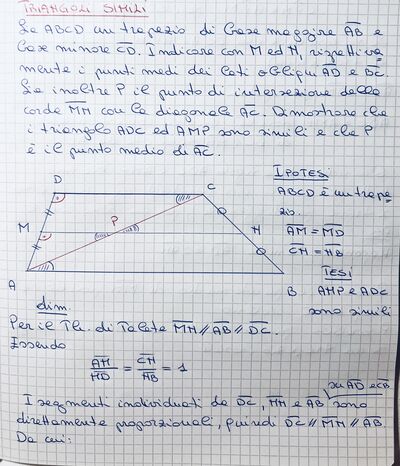 TRIANGOLI SIMILI
Se ABCD un trapezio di base maggiore AB e
base minore CD. Indicare con M ed N, rispettiva
mente i punti medi dei lati obliqui AD e BC.
Se inoltre P il punto di intersezione della
corda MN con la diagonale AC. Dimostrare che
i triangolo ADC ed AMP sono simili e che P
è il punto medio di AC.
IPOTESI
ABCD è un trape
zio.
AM = MD
CN = NB
TESI
AMP e ADC
sono simili
D
C
M
P
N
A
B
dim
Per il Th. di Talete MN // AB // DC.
Essendo
AM/MD = CN/NB = 1
su AD e CB
I segmenti individuati da DC, MN e AB sono
direttamente proporzionali, quindi DC // MN // AB
Da cui: